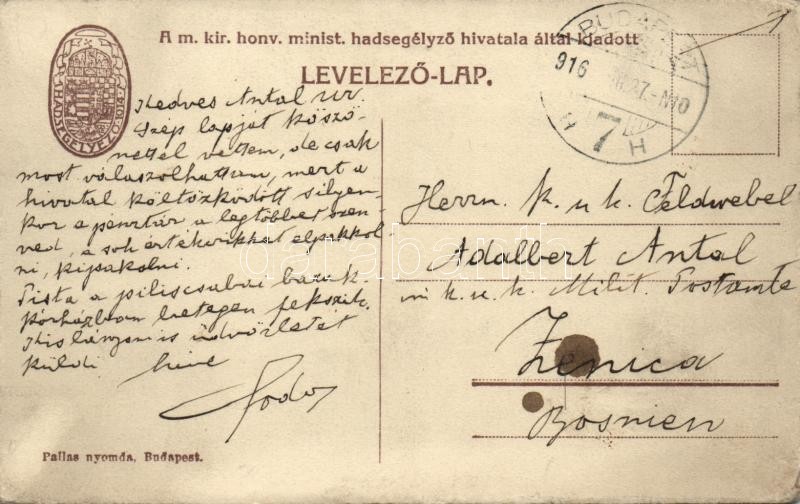 A m. kir. honv. minist. hadsegélyző hivatala által kiadott
LEVELEZŐ-LAP.
HADSEGÉLYEZŐ 1914
BUDAPEST
916
27.-N10
7
H H
Kedves Antal úr
Szép lapját köszö-
nettel vettem, de csak
most válaszolhattam, mert a
hivatal költözködött s ilyen-
kor a pénztár a legtöbbet szen-
ved, a sok értékcikket elpakkol-
ni, kipakolni.
Pista a piliscsabai barak-
kórházban betegen fekszik.
Kislányom is üdvözletét
küldi híve
Fodor
Herrn k. u. k. Feldwebel
Adalbert Antal
in k. u. k. Milit. Postamte
Zenica
Bosnien
Pallas nyomda, Budapest.
darabanth.com